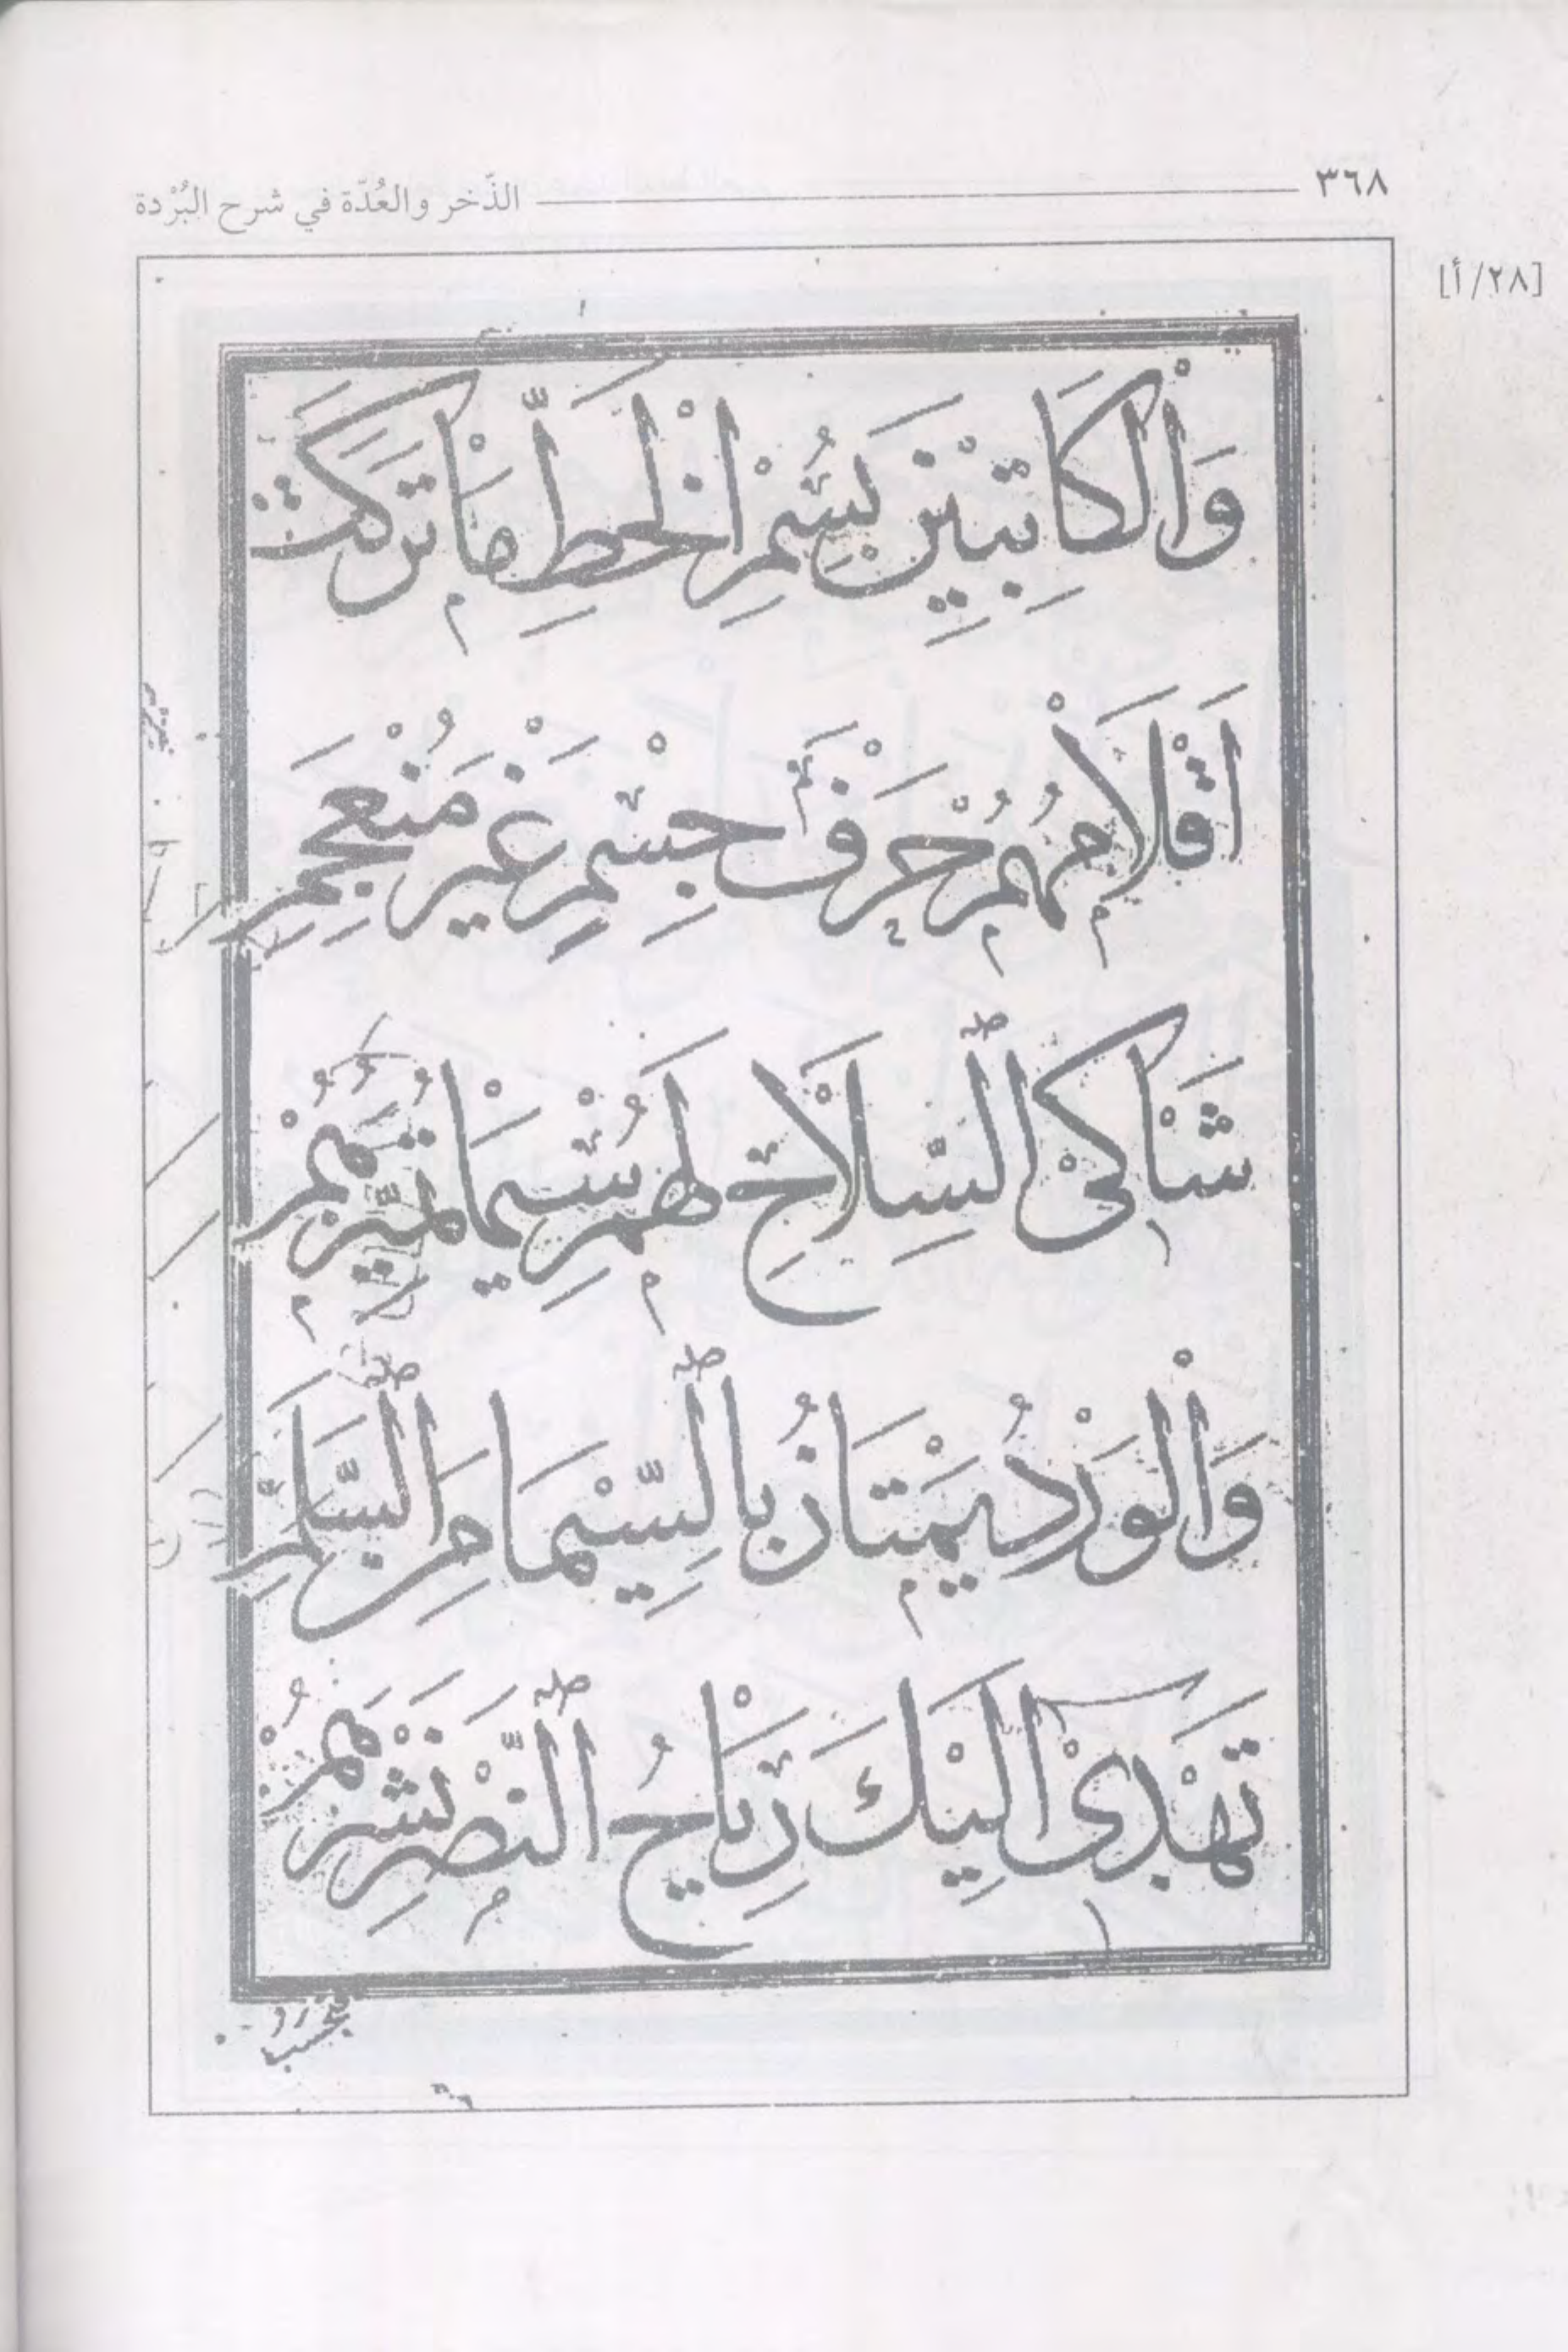 ٣٦٨
الذّخر والعُدّة في شرح البُرْدة
[٢٨/أ]
وَالْكَاتِبِيْنَ بِسُمْرِ الْخَطِّ مَا تَرَكَتْ
اَقْلَامُهُمْ حَرْفَ جِسْمٍ غَيْرَ مُنْعَجِمِ
شَاكِى السِّلَاحِ لَهُمْ سِيْمَا تُمَيِّزُهُمْ
وَالْوَرْدُ يَمْتَازُ بِالسِّيْمَا مِنَ السَّلَمِ
تَهْدِىْ اِلَيْكَ رِيَاحُ النَّصْرِ نَشْرَهُمُ